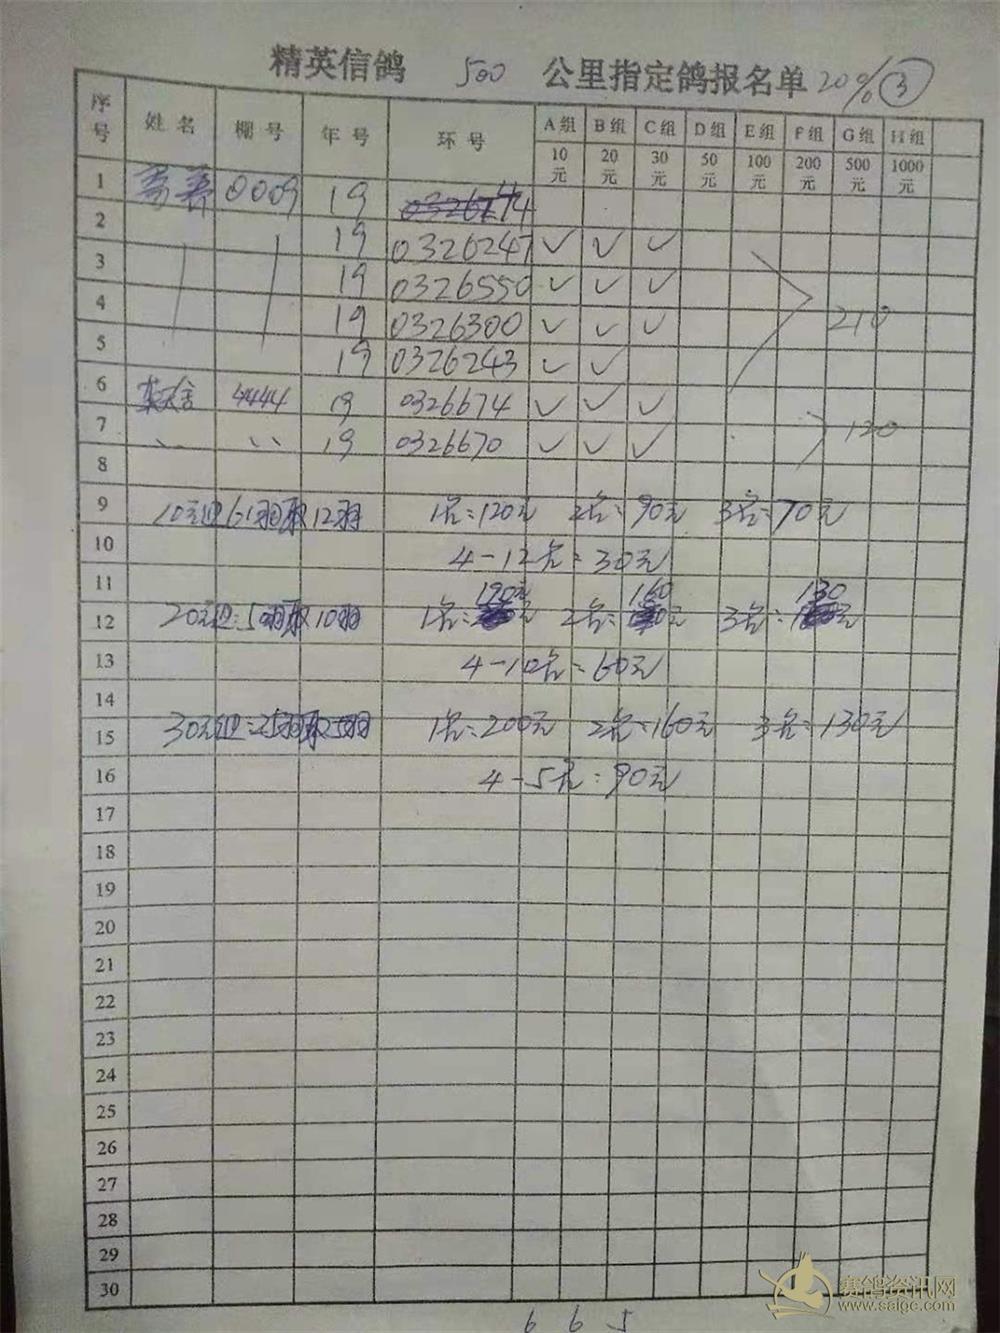 精英信鸽 500 公里指定鸽报名单 20% ③
序号 姓名 棚号 年号 环号 A组 B组 C组 D组 E组 F组 G组 H组
10元 20元 30元 50元 100元 200元 500元 1000元
1 0009 19
2 19 0326247 ✓ ✓ ✓
3 19 0326550 ✓ ✓ ✓
4 19 0326300 ✓ ✓ ✓ 210
5 19 0326243 ✓ ✓
6 4444 19 0326674 ✓ ✓ ✓
7 19 0326670 ✓ ✓ ✓ 120
8
9 10元 61羽取12羽 1名:120元 2名:90元 3名:70元
10 4-12名:30元
11
12 20元 50羽取10羽 1名:190元 2名:160元 3名:130元
13 4-10名:60元
14
15 30元 25羽取5羽 1名:200元 2名:160元 3名:130元
16 4-5名:90元
17
18
19
20
21
22
23
24
25
26
27
28
29
30
6 6 5
赛鸽资讯网
www.saigc.com